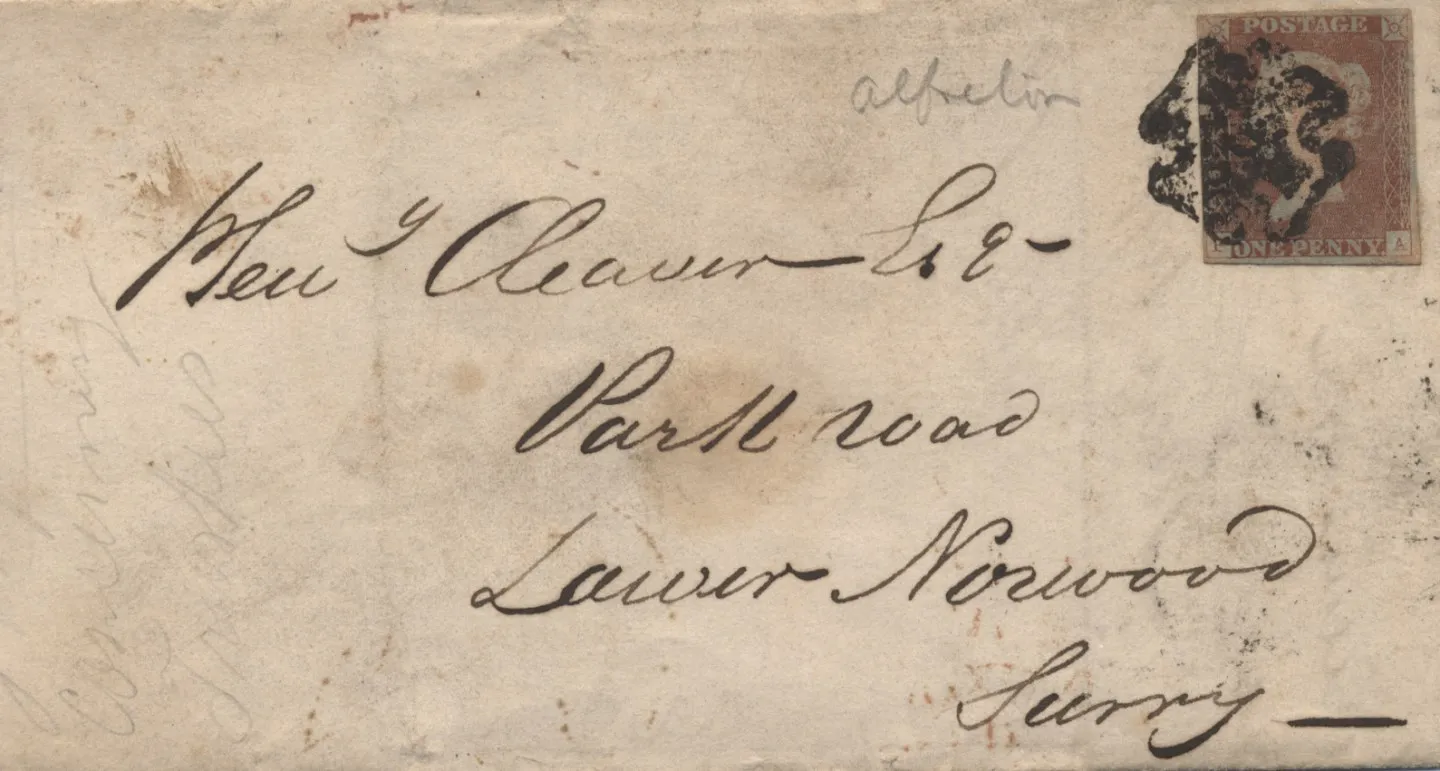 POSTAGE
alfreton
ONE PENNY A
Henʸ Cleaver Esq -
Park road
Lower Norwood
Surry —